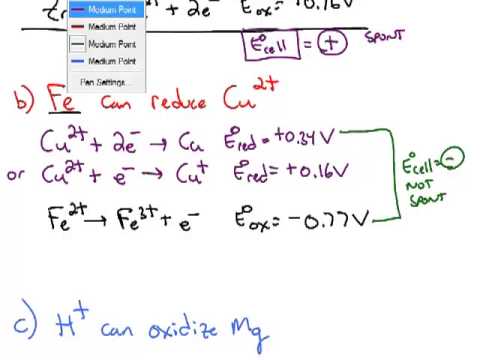 ²⁺ + 2e⁻ E°ox = +0.76V
Medium Point
Medium Point
Medium Point
Medium Point
Pen Settings...
E°cell = + SPONT
b) Fe can reduce Cu²⁺
Cu²⁺ + 2e⁻ → Cu E°red = +0.34V
or Cu²⁺ + e⁻ → Cu⁺ E°red = +0.16V
Fe²⁺ → Fe³⁺ + e⁻ E°ox = -0.77V
E°cell = -
NOT
SPONT
c) H⁺ can oxidize Mg